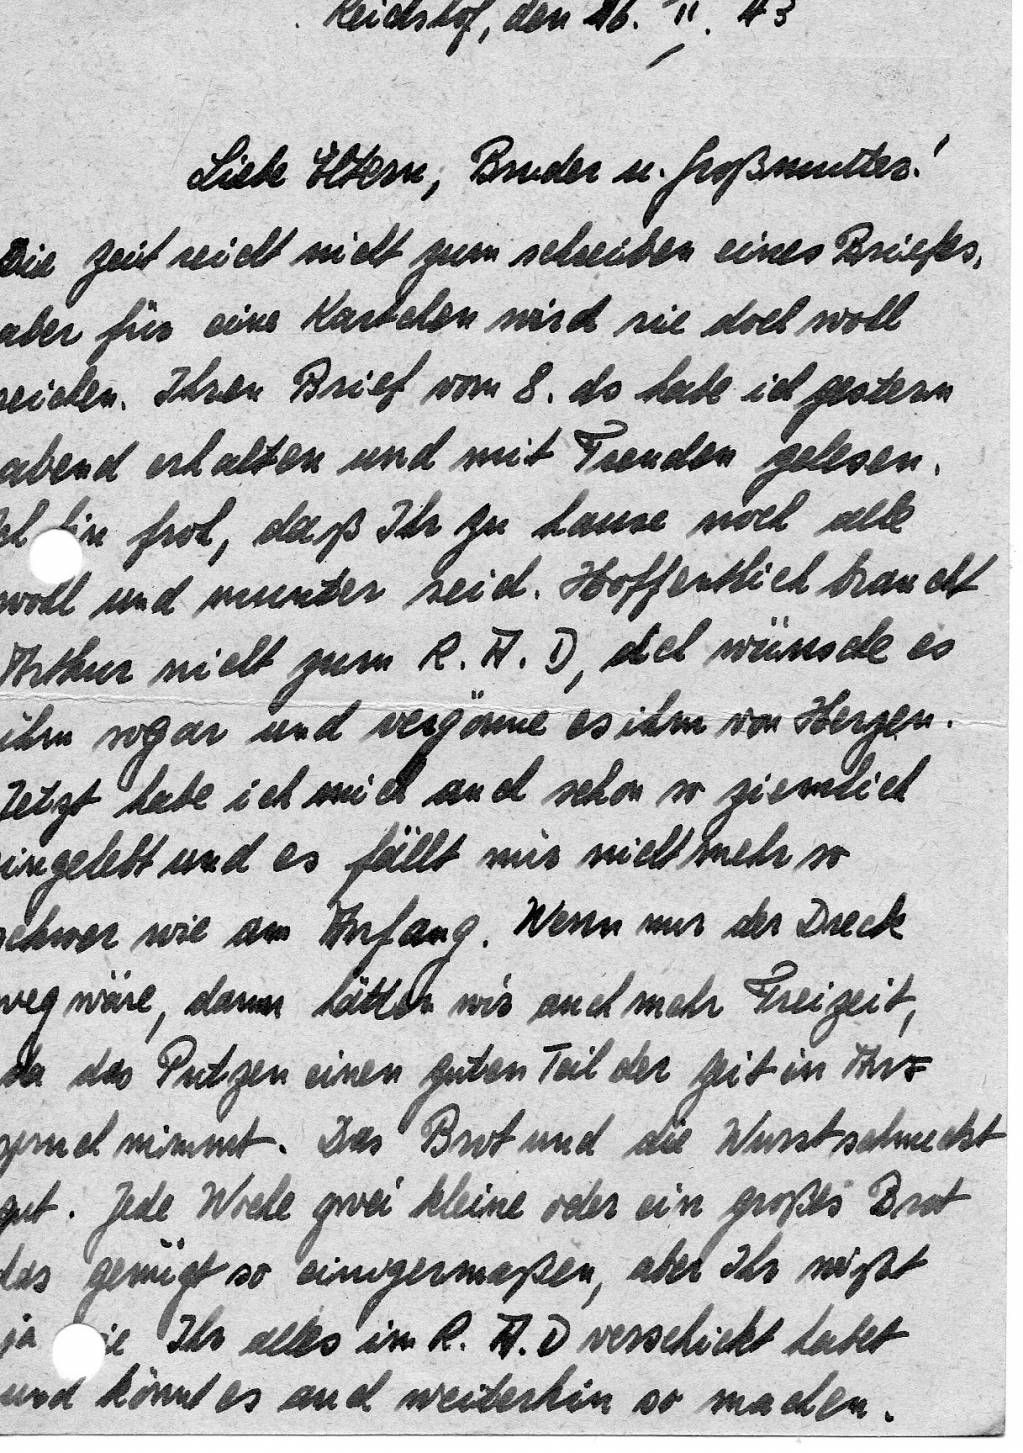 Reichshof, den 26. II. 43
Liebe Eltern, Bruder u. Großmutter!
Die Zeit reicht nicht zum schreiben eines Briefes,
aber für eine Kartchen wird sie doch wohl
reichen. Ihren Brief vom 8. ds habe ich gestern
abend erhalten und mit Freuden gelesen.
Ich bin froh, daß Ihr zu hause noch alle
wohl und munter seid. Hoffentlich braucht
Arthur nicht zum R. A. D, ich wünsche es
ihm sogar und vergönne es ihm von Herzen.
Jetzt habe ich mich auch schon so ziemlich
eingelebt und es fällt mir nicht mehr so
schwer wie am Anfang. Wenn nur der Dreck
weg wäre, dann hätten wir auch mehr Freizeit,
da das Putzen einen guten Teil der Zeit in An-
spruch nimmt. Das Brot und die Wurst schmeckt
gut. Jede Woche zwei kleine oder ein großes Brot
das genügt so einigermaßen, aber Ihr wißt
ja wie Ihr alles im R. A. D verschickt habet
und könnt es auch weiterhin so machen.